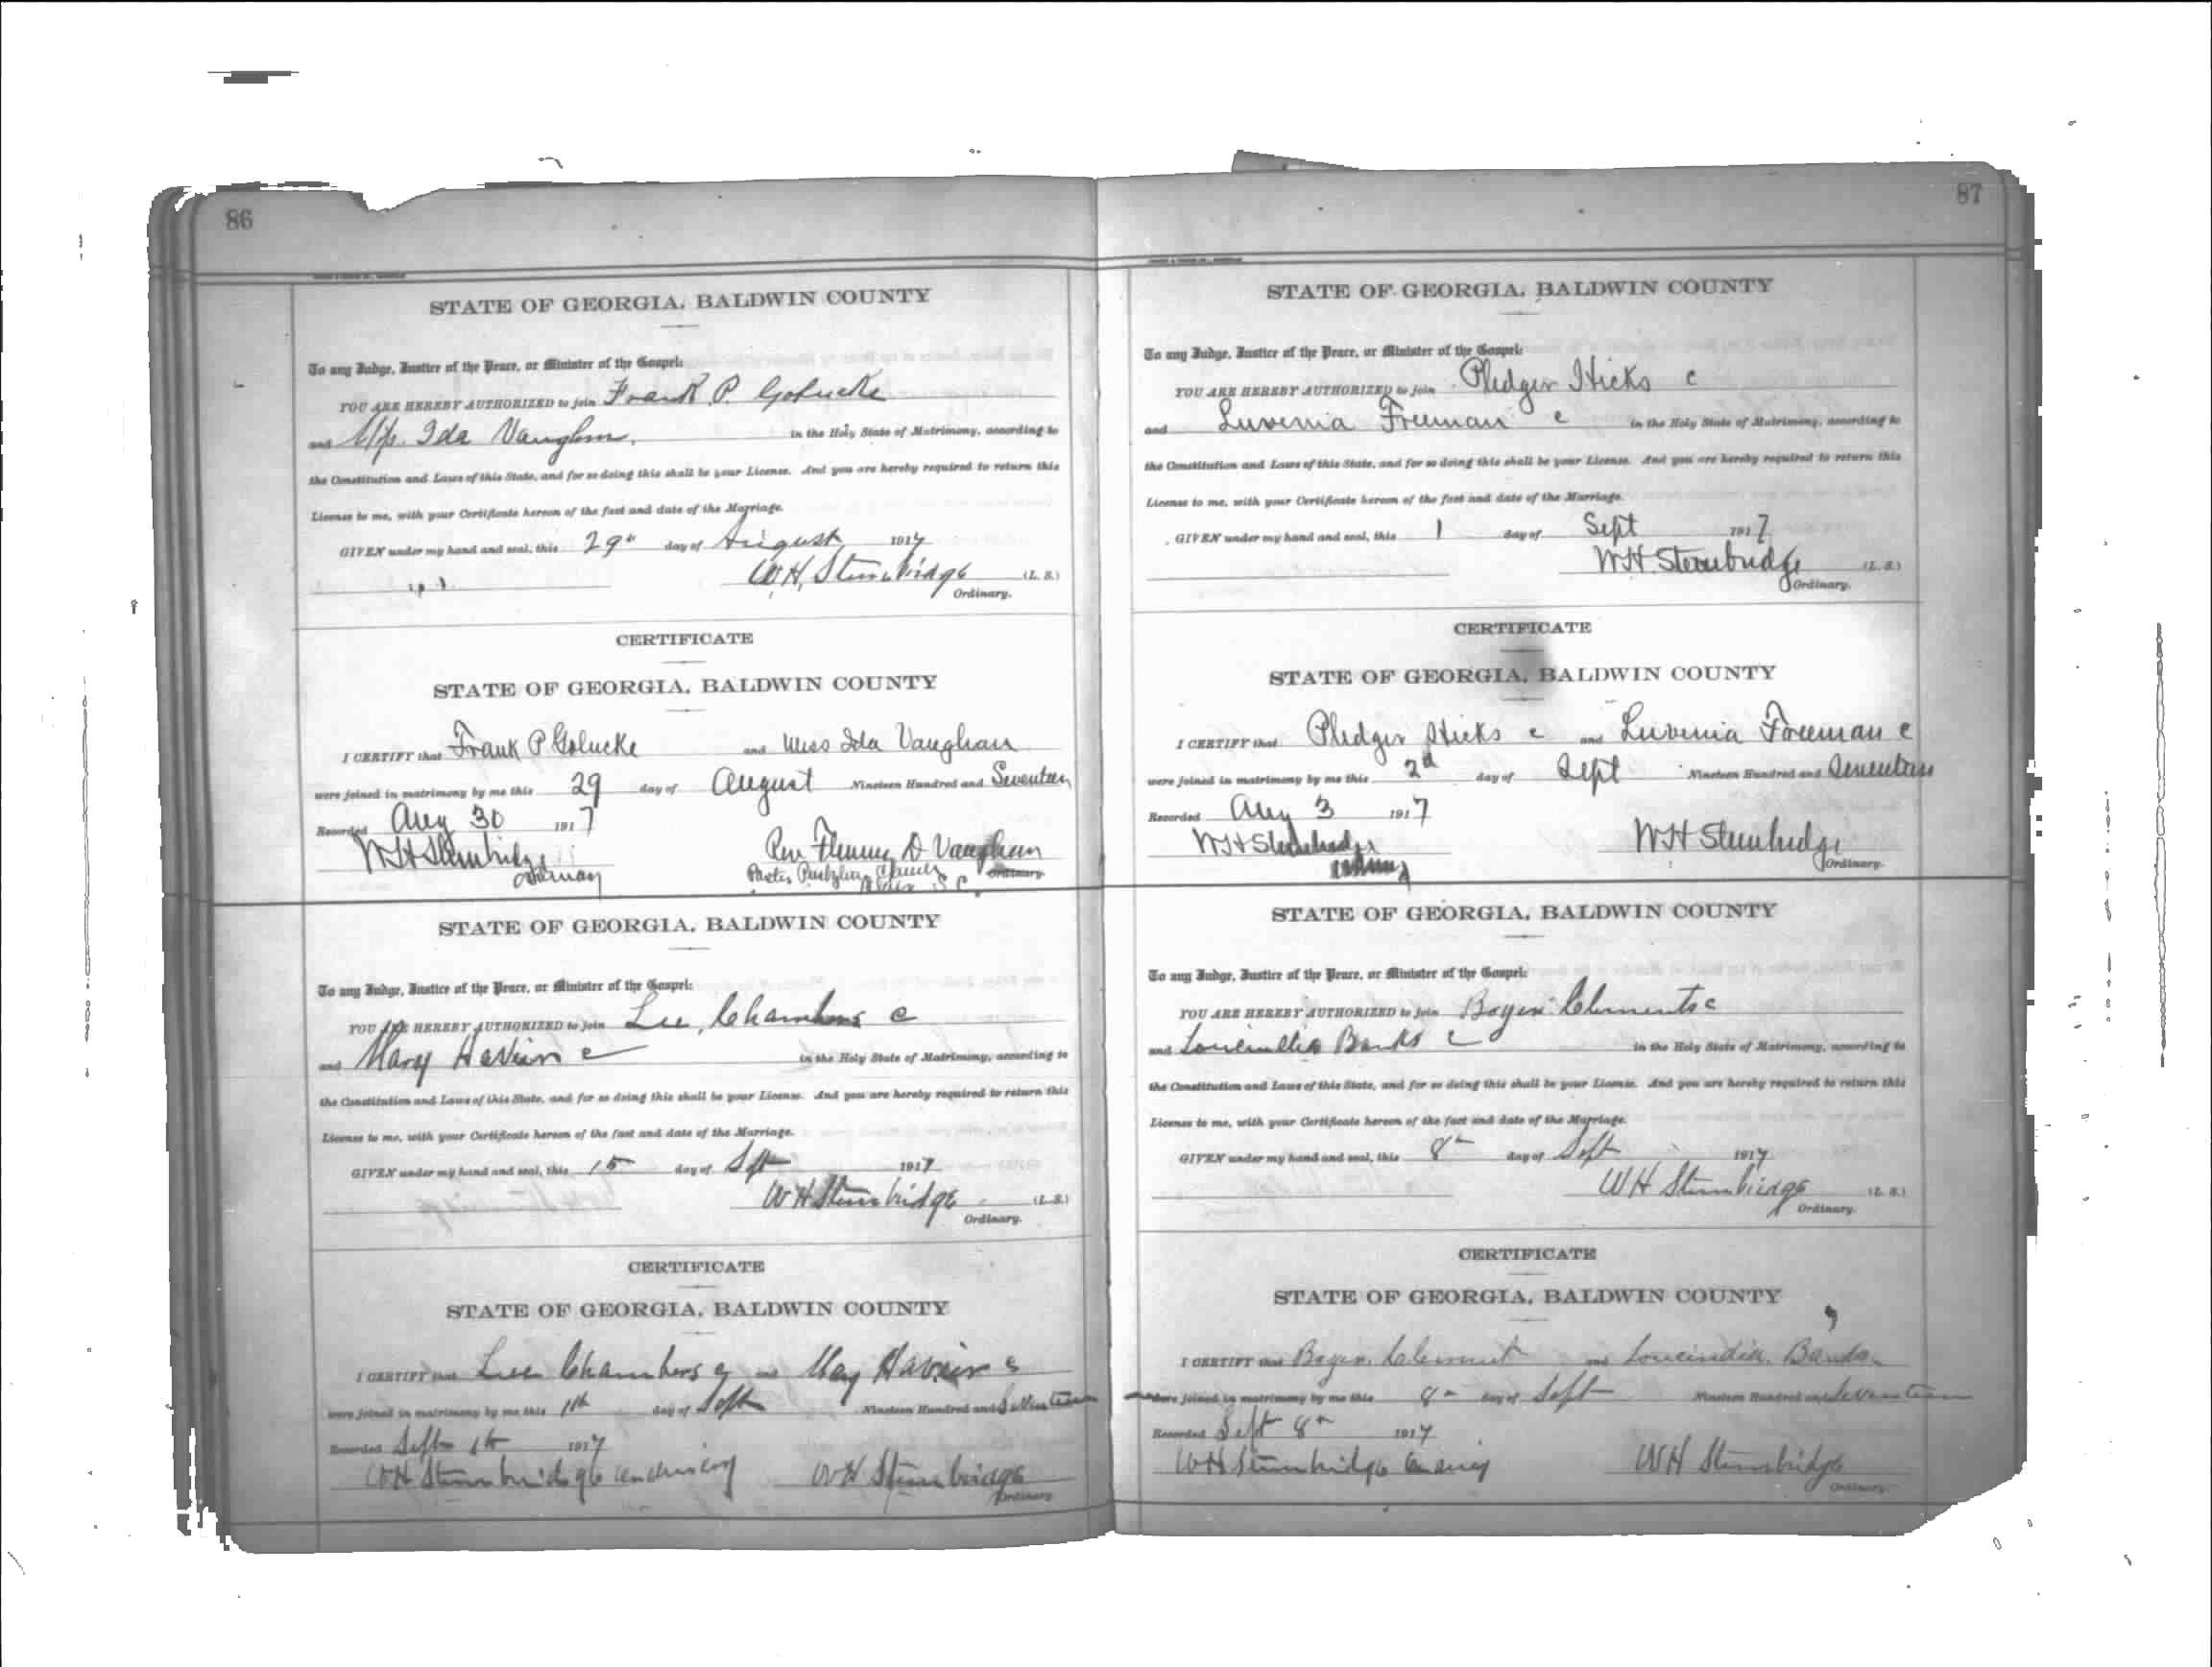 86
STATE OF GEORGIA, BALDWIN COUNTY
To any Judge, Justice of the Peace, or Minister of the Gospel:
YOU ARE HEREBY AUTHORIZED to join Frank P. Golucke
and Miss Ida Vaughn, in the Holy State of Matrimony, according to
the Constitution and Laws of this State, and for so doing this shall be your License. And you are hereby required to return this
License to me, with your Certificate hereon of the fact and date of the Marriage.
GIVEN under my hand and seal, this 29th day of August 1917
W.H. Stembridge (L. S.)
Ordinary.
CERTIFICATE
STATE OF GEORGIA, BALDWIN COUNTY
I CERTIFY that Frank P Golucke and Miss Ida Vaughan
were joined in matrimony by me this 29 day of August Nineteen Hundred and Seventeen
Recorded Aug 30 1917
W H Stembridge Rev Fleming D Vaughan
Pastor Church S C. Ordinary
STATE OF GEORGIA, BALDWIN COUNTY
To any Judge, Justice of the Peace, or Minister of the Gospel:
YOU ARE HEREBY AUTHORIZED to join Lee Chambers c
and Mary c in the Holy State of Matrimony, according to
the Constitution and Laws of this State, and for so doing this shall be your License. And you are hereby required to return this
License to me, with your Certificate hereon of the fact and date of the Marriage.
GIVEN under my hand and seal, this day of Sept 1917
W H Stembridge (L. S.)
Ordinary.
CERTIFICATE
STATE OF GEORGIA, BALDWIN COUNTY
I CERTIFY that Lee Chambers c and May c
were joined in matrimony by me this day of Sept Nineteen Hundred and Seventeen
Recorded Sept 1917
W H Stembridge W H Stembridge
Ordinary
87
STATE OF GEORGIA, BALDWIN COUNTY
To any Judge, Justice of the Peace, or Minister of the Gospel:
YOU ARE HEREBY AUTHORIZED to join Pledger Hicks c
and Luvenia Freeman c in the Holy State of Matrimony, according to
the Constitution and Laws of this State, and for so doing this shall be your License. And you are hereby required to return this
License to me, with your Certificate hereon of the fact and date of the Marriage.
GIVEN under my hand and seal, this 1 day of Sept 1917
W.H. Stembridge (L. S.)
Ordinary.
CERTIFICATE
STATE OF GEORGIA, BALDWIN COUNTY
I CERTIFY that Pledger Hicks c and Luvenia Freeman c
were joined in matrimony by me this 2d day of Sept Nineteen Hundred and Seventeen
Recorded Aug 3 1917
W H Stembridge W H Stembridge
Ordinary.
STATE OF GEORGIA, BALDWIN COUNTY
To any Judge, Justice of the Peace, or Minister of the Gospel:
YOU ARE HEREBY AUTHORIZED to join Clements c
and Banks c in the Holy State of Matrimony, according to
the Constitution and Laws of this State, and for so doing this shall be your License. And you are hereby required to return this
License to me, with your Certificate hereon of the fact and date of the Marriage.
GIVEN under my hand and seal, this 8th day of Sept 1917
W H Stembridge (L. S.)
Ordinary.
CERTIFICATE
STATE OF GEORGIA, BALDWIN COUNTY
I CERTIFY that Clement and Loucindia Banks
were joined in matrimony by me this 8th day of Sept Nineteen Hundred and Seventeen
Recorded Sept 8th 1917
W H Stembridge W H Stembridge
Ordinary.